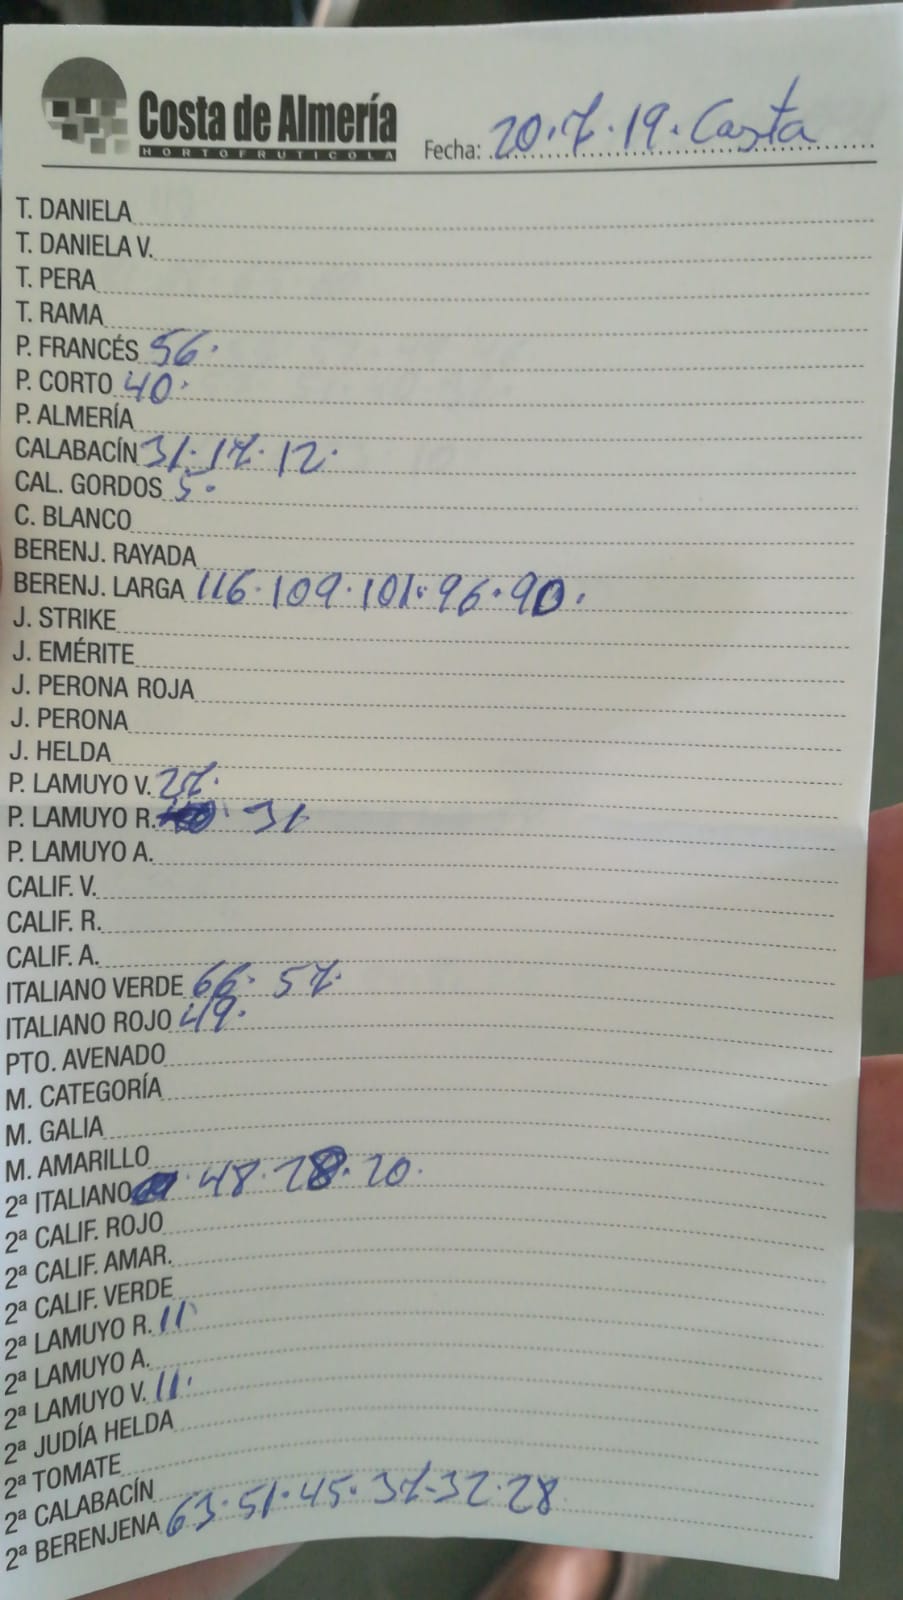 Costa de Almería
HORTOFRUTICOLA
Fecha: 20.7.19. Casta
T. DANIELA
T. DANIELA V.
T. PERA
T. RAMA
P. FRANCÉS 56.
P. CORTO 40.
P. ALMERÍA
CALABACÍN 31. 17. 12.
CAL. GORDOS 5.
C. BLANCO
BERENJ. RAYADA
BERENJ. LARGA 116.109.101.96.90.
J. STRIKE
J. EMÉRITE
J. PERONA ROJA
J. PERONA
J. HELDA
P. LAMUYO V. 27.
P. LAMUYO R. 31
P. LAMUYO A.
CALIF. V.
CALIF. R.
CALIF. A.
ITALIANO VERDE 66. 57.
ITALIANO ROJO 49.
PTO. AVENADO
M. CATEGORÍA
M. GALIA
M. AMARILLO
2ª ITALIANO 48.28.20.
2ª CALIF. ROJO
2ª CALIF. AMAR.
2ª CALIF. VERDE
2ª LAMUYO R. 11
2ª LAMUYO A.
2ª LAMUYO V. 11.
2ª JUDÍA HELDA
2ª TOMATE
2ª CALABACÍN
2ª BERENJENA 63.51.45.37.32.28